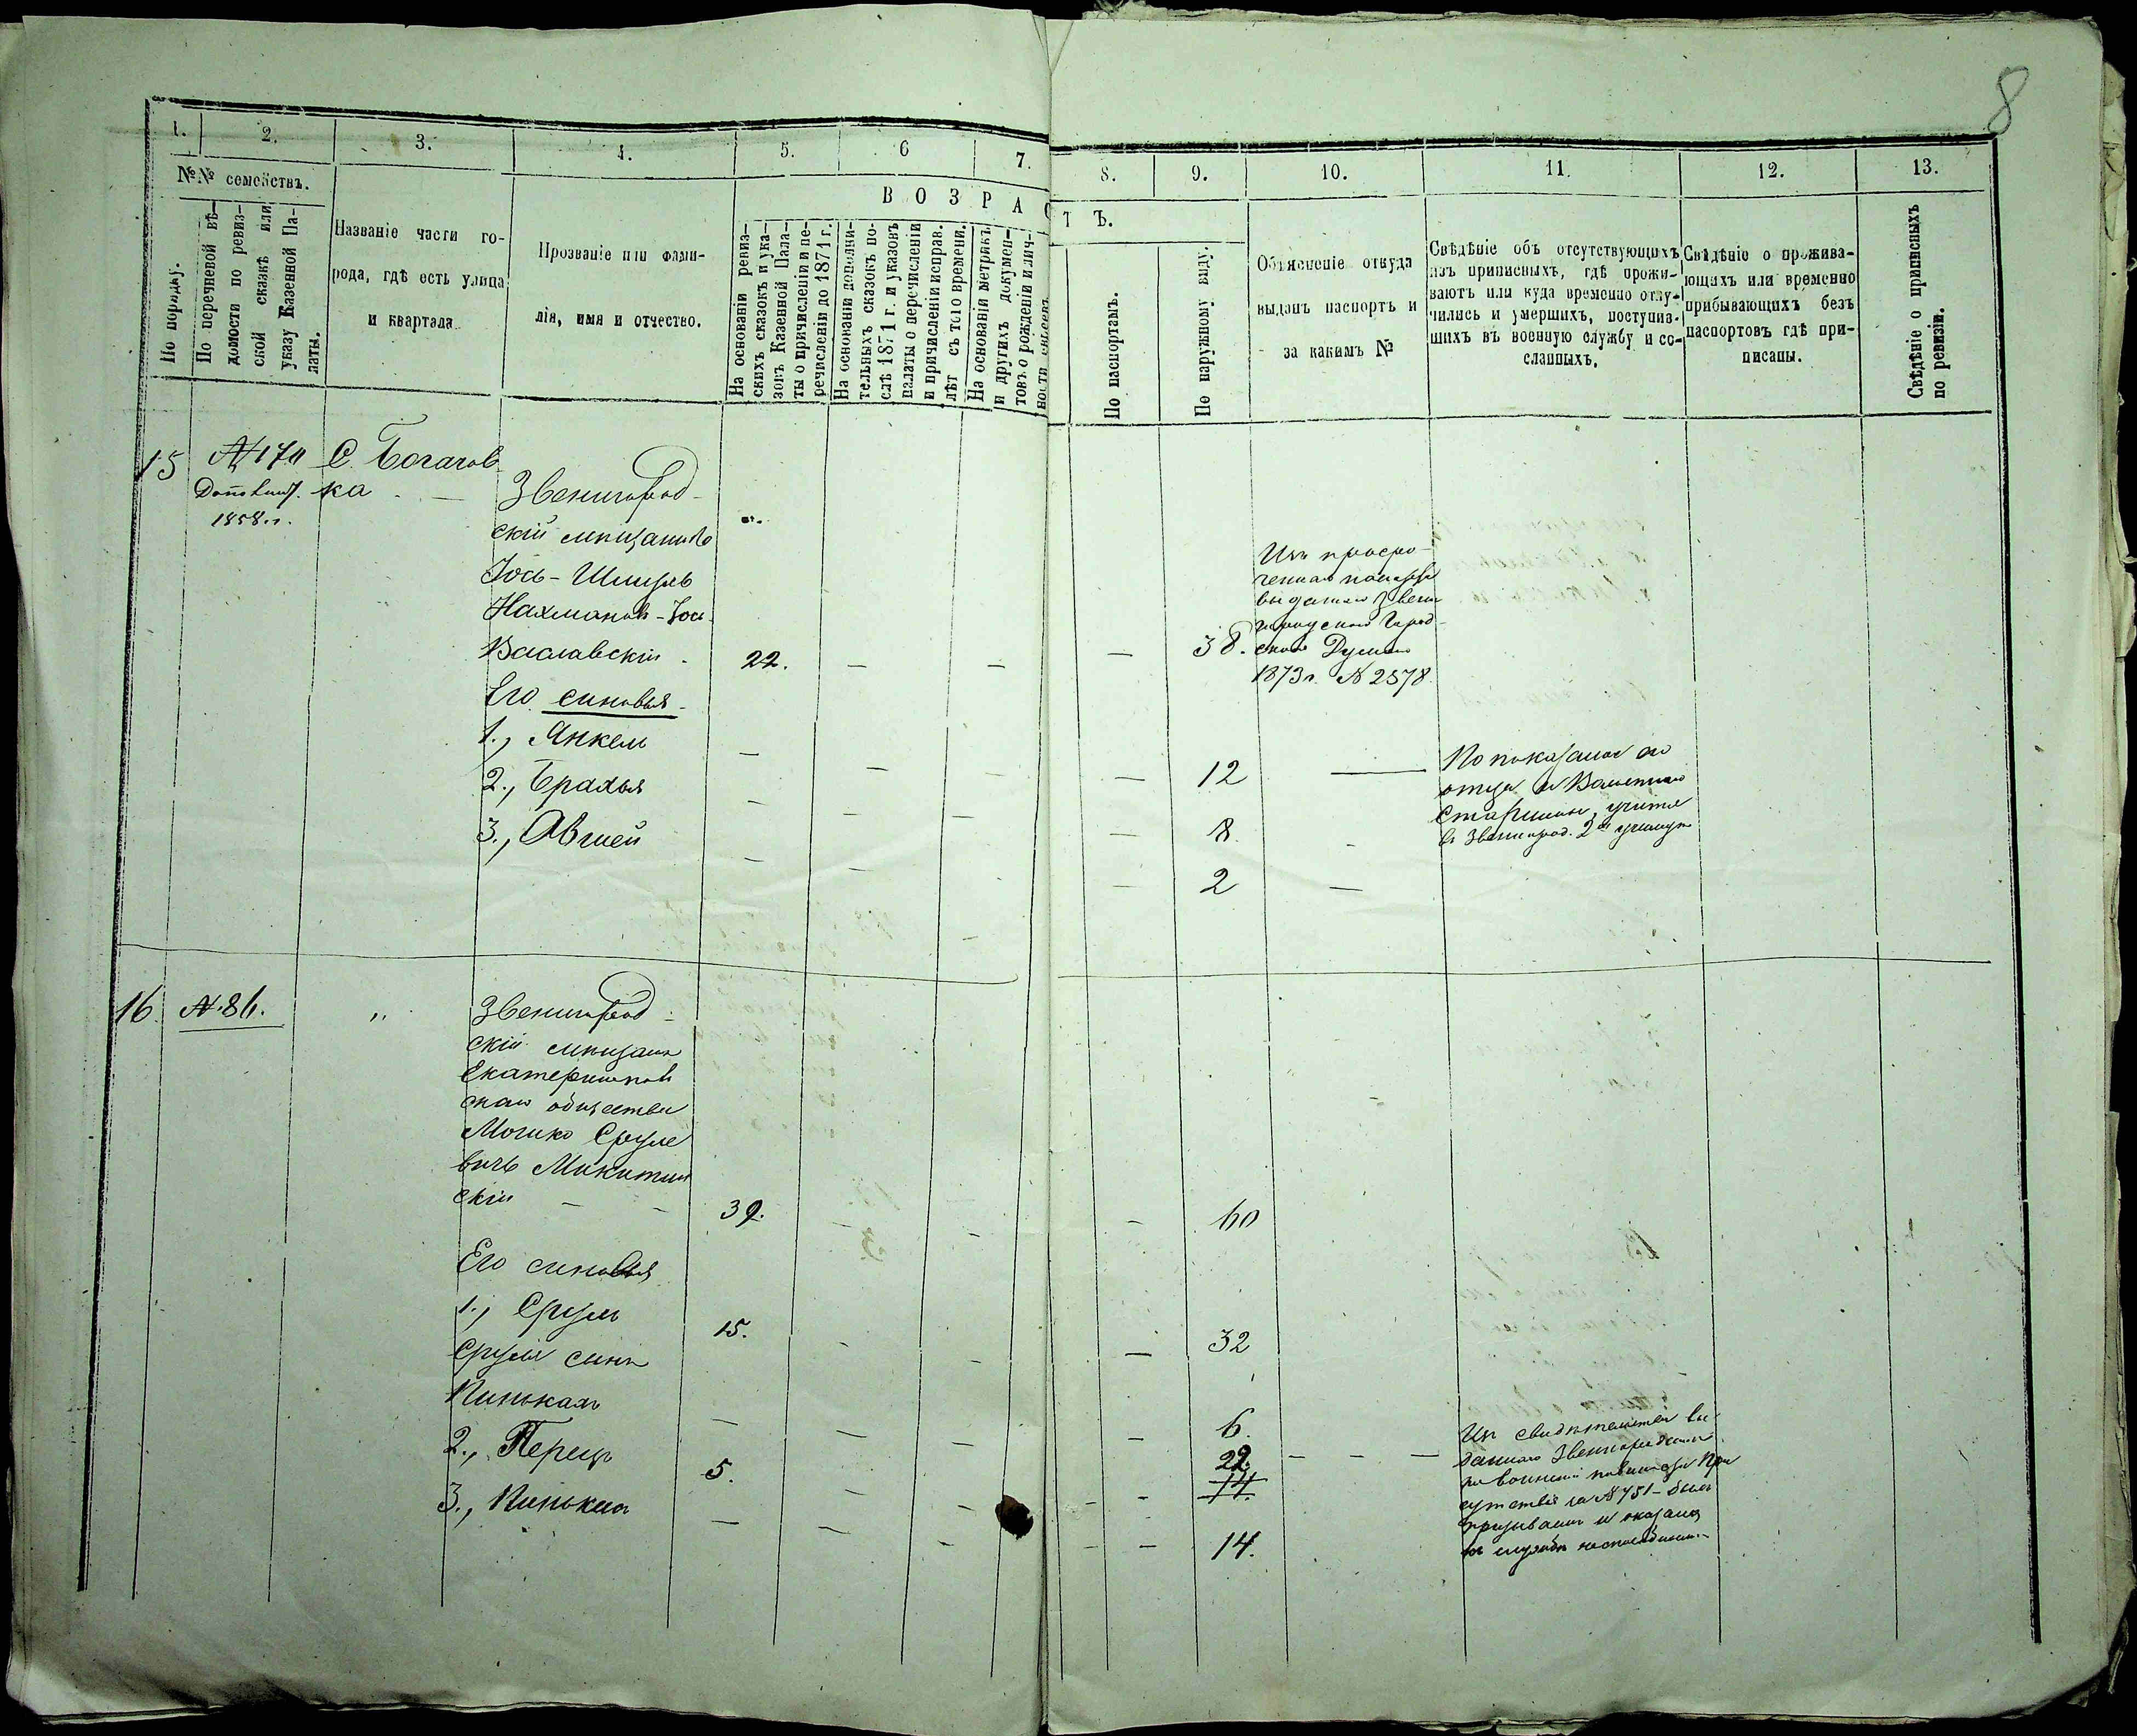 8
1.
2.
3.
4.
5.
6
7.
8.
9.
10.
11.
12.
13.
№№ семействъ.
По порядку.
По перечневой вѣ-
домости по ревиз-
ской сказкѣ или
указу Казенной Па-
латы.
Названіе части го-
рода, гдѣ есть улица
и квартала.
Прозваніе или фами-
лія, имя и отчество.
ВОЗРАСТЪ.
На основаніи ревиз-
скихъ сказокъ и ука-
зовъ Казенной Пала-
ты о причисленіи и пе-
речисленіи до 1871 г.
На основаніи дополни-
тельныхъ сказокъ по-
слѣ 1871 г. и указовъ
палаты о перечисленіи
и причисленіи исправ.
лѣт съ того времени.
На основаніи метрикъ
и другихъ докумен-
товъ о рожденіи и лич-
ности
По паспортамъ.
По наружному виду.
Объясненіе откуда
выданъ паспортъ и
за какимъ №
Свѣдѣніе объ отсутствующихъ
изъ приписныхъ, гдѣ прожи-
ваютъ или куда временно отлу-
чились и умершихъ, поступив-
шихъ въ военную службу и со-
сланныхъ.
Свѣдѣніе о прожива-
ющихъ или временно
прибывающихъ безъ
паспортовъ гдѣ при-
писаны.
Свѣдѣніе о приписныхъ
по ревизіи.
15
№ 170
1858 г.
С. Богачов
ка
Звенигород-
скій мѣщанинъ
Іось-Шмуль
Нахманов-Іось
Ваславскій
22.
38.
Изъ просро-
ченнаго
выданнаго Звени
городскою Город-
скою Думою
1873 г. № 2578.
Его синовья
1., Янкель
12
2., Брахья
8.
3., Авшей
2
По показанію его
отца и
Старшины, учится
в Звенигород. 2
16.
№ 86.
"
Звенигород-
скій мѣщанин
Екатеринопол
скаго общества
Мошко Сруле
вичъ Микитин
скій
39.
60
Его синовья
1., Сруль
15.
32
Сруля синъ
Пинькас
6.
2., Перец
5.
22.
14.
3., Пинькас
14.
Из свидѣтельства вы-
даннаго Звенигородским
по воинской повинности При
сутствія за № 751 – был
призываем и оказался
къ службѣ неспособным